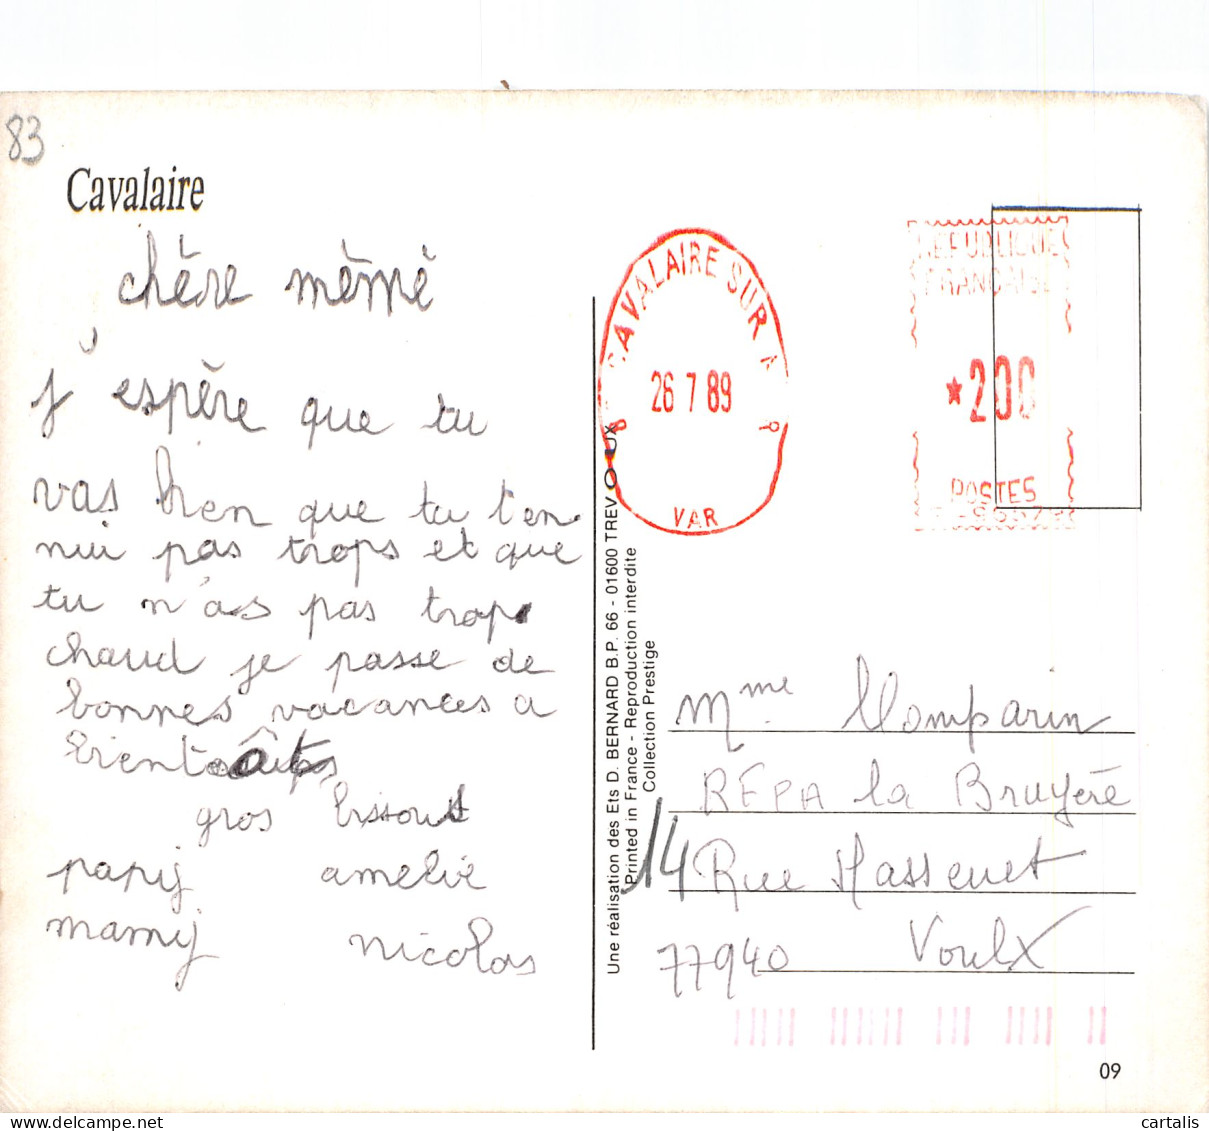 83
Cavalaire
chère mémé
j'espère que tu
vas bien que tu t'en
nui pas trops et que
tu n'as pas trop
chaud je passe de
bonnes vacances a
bientôt
gros bisous
papy amelie
mamy nicolas
CAVALAIRE SUR
26 7 89
VAR
REPUBLIQUE
FRANCAISE
*200
POSTES
Une réalisation des Ets D. BERNARD B.P. 66 - 01600 TREVOUX
Printed in France - Reproduction interdite
Collection Prestige
Mme
REPA la Bruyère
14 Rue Massenet
77940 Voulx
09
cartalis